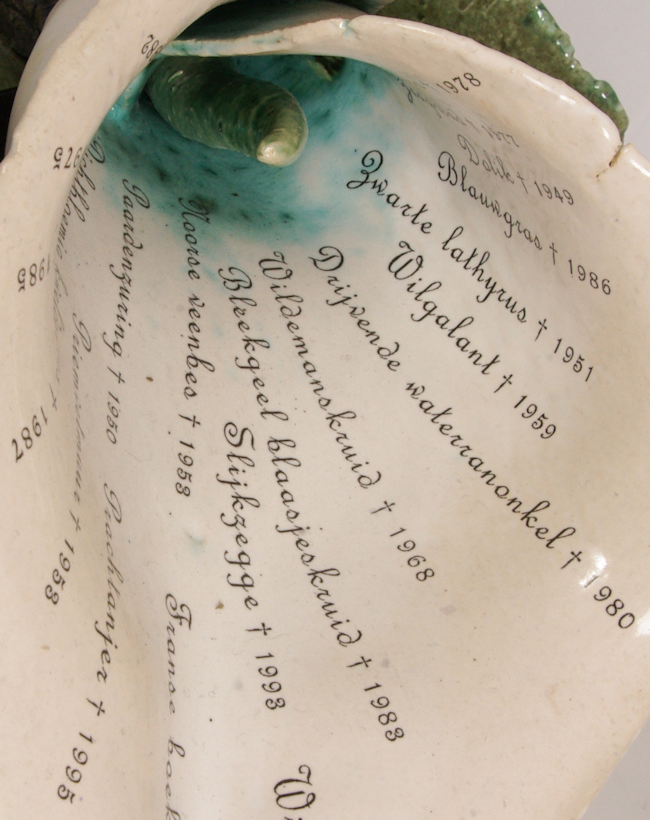 1978
Dolik † 1949
Blauwgras † 1986
Zwarte lathyrus † 1951
Wilgalant † 1959
Drijvende waterranonkel † 1980
Wildemanskruid † 1968
Bleekgeel blaasjeskruid † 1983
Slijkzegge † 1993
Noorse veenbes † 1958
Franse
Paardenzuring † 1950
Prachtanjer † 1995
† 1958
† 1987
1985
1975